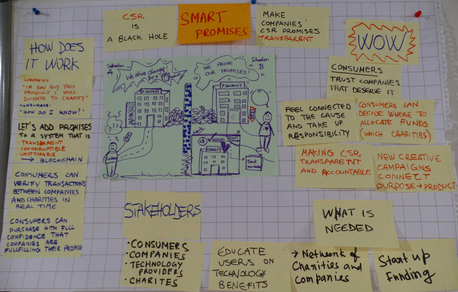 CSR
IS
A BLACK HOLE
SMART
PROMISES
MAKE
COMPANIES'
CSR PROMISES
TRANSPARENT
WOW
HOW DOES
IT WORK
COMPANIES
"IF YOU BUY THIS
PRODUCT I WILL
DONATE TO CHARITY"
CONSUMERS
"HOW DO I KNOW?"
LET'S ADD PROMISES
TO A SYSTEM THAT IS
TRANSPARENT
INCORRUPTIBLE
→ BLOCKCHAIN
CONSUMERS CAN
VERIFY TRANSACTIONS
BETWEEN COMPANIES
AND CHARITIES IN
REAL TIME
CONSUMERS CAN
PURCHASE WITH FULL
CONFIDENCE THAT
COMPANIES ARE
FULFILLING THEIR PROMISE
Situation
A
Situation
B
WE PROVE
OUR PROMISES
CONSUMERS
TRUST COMPANIES
THAT DESERVE IT
FEEL CONNECTED
TO THE CAUSE
AND TAKE UP
RESPONSIBILITY
CONSUMERS CAN
DECIDE WHERE TO
ALLOCATE FUNDS
(WHICH CHARITIES)
MAKING CSR
TRANSPARENT
AND ACCOUNTABLE
NEW CREATIVE
CAMPAIGNS
CONNECT
PURPOSE → PRODUCT
STAKEHOLDERS
• CONSUMERS
• COMPANIES
• TECHNOLOGY
PROVIDERS
• CHARITES
WHAT IS
NEEDED
EDUCATE
USERS ON
TECHNOLOGY
BENEFITS
→ Network of
Charities and
Companies
Start up
Funding